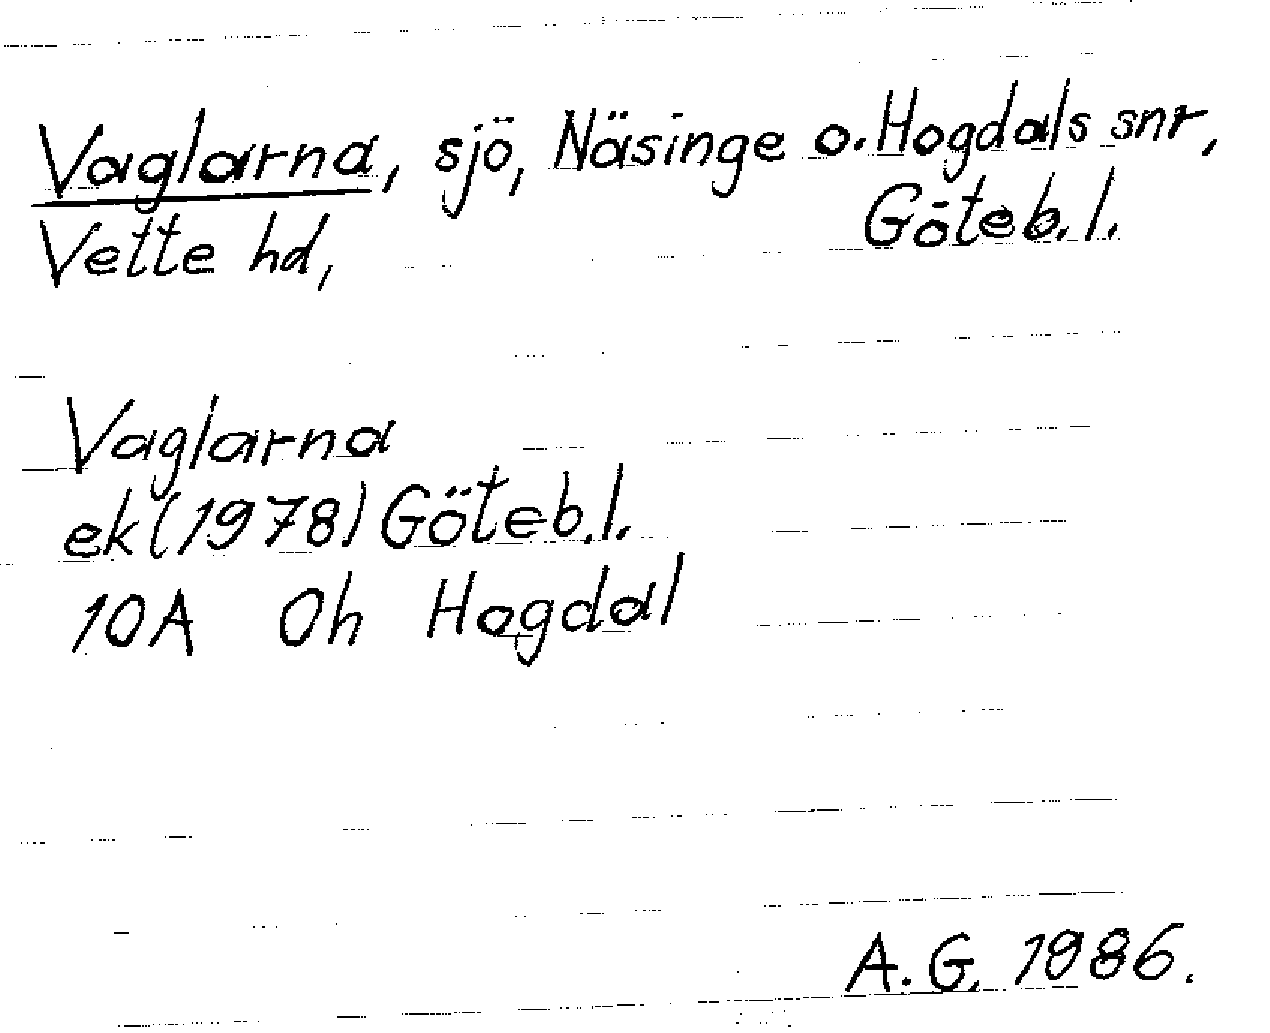 Vaglarna, sjö, Näsinge o. Hogdals snr,
Vette hd, Göteb. l.
Vaglarna
ek (1978) Göteb. l.
10A 0h Hogdal
A. G. 1986.